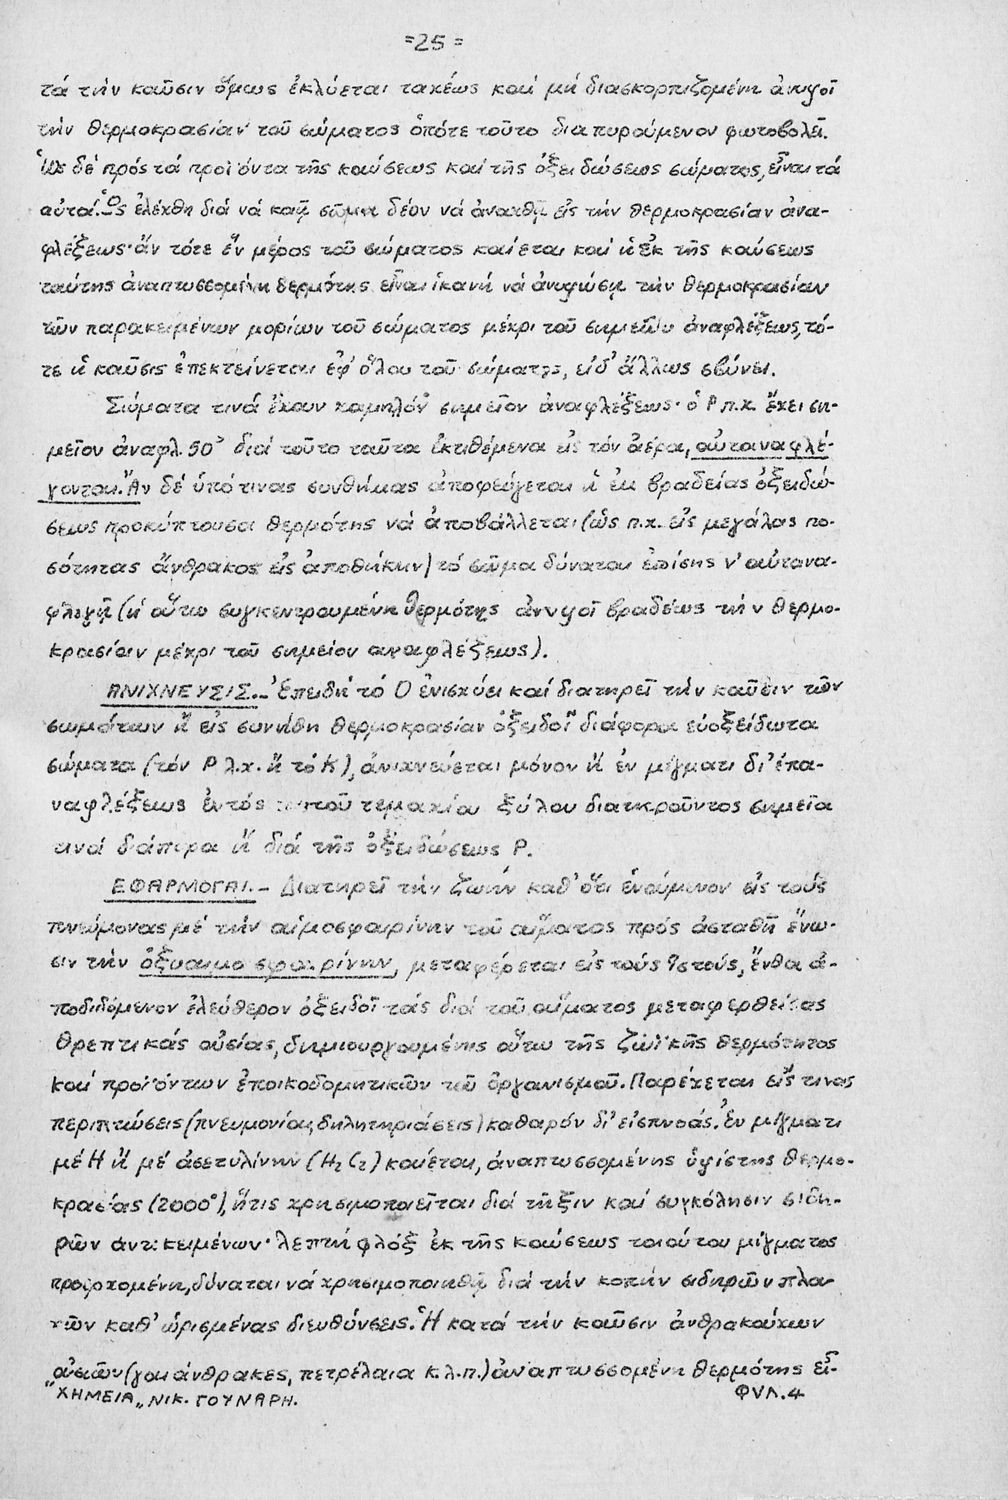 =25=
τά τήν καῦσιν ὅμως ἐκλύεται ταχέως καί μή διασκορπιζομένη ἀνυψοῖ
τήν θερμοκρασίαν τοῦ σώματος ὁπότε τοῦτο διαπυρούμενον φωτοβολεῖ.
Ὡς δέ πρός τά προϊόντα τῆς καύσεως καί τῆς ὀξειδώσεως σώματος, εἶναι τά
αὐτά. Ὡς ἐλέχθη διά νά καῇ σῶμα δέον νά ἀναχθῇ εἰς τήν θερμοκρασίαν ἀνα-
φλέξεως· ἄν τότε ἕν μέρος τοῦ σώματος καίεται καί ἡ ἐκ τῆς καύσεως
ταύτης ἀναπτυσσομένη θερμότης εἶναι ἱκανή νά ἀνυψώσῃ τήν θερμοκρασίαν
τῶν παρακειμένων μορίων τοῦ σώματος μέχρι τοῦ σημείου ἀναφλέξεως, τό-
τε ἡ καῦσις ἐπεκτείνεται ἐφ' ὅλου τοῦ σώματος, εἰδ' ἄλλως σβύνει.
Σώματα τινά ἔχουν χαμηλόν σημεῖον ἀναφλέξεως· ὁ P π.χ. ἔχει ση-
μεῖον ἀναφλ. 50° διά τοῦτο ταῦτα ἐκτιθέμενα εἰς τόν ἀέρα, αὐταναφλέ-
γονται. Ἄν δέ ὑπό τινας συνθήκας ἀποφεύγεται ἡ ἐκ βραδείας ὀξειδώ-
σεως προκύπτουσα θερμότης νά ἀποβάλλεται (ὡς π.χ. εἰς μεγάλας πο-
σότητας ἄνθρακος εἰς ἀποθήκην) τό σῶμα δύναται ἐπίσης ν' αὐτανα-
φλεγῇ (ἡ οὕτω συγκεντρουμένη θερμότης ἀνυψοῖ βραδέως τήν θερμο-
κρασίαν μέχρι τοῦ σημείου αναφλέξεως).
ΑΝΙΧΝΕΥΣΙΣ.- Ἐπειδή τό Ο ἐνισχύει καί διατηρεῖ τήν καῦσιν τῶν
σωμάτων ἤ εἰς συνήθη θερμοκρασίαν ὀξειδοῖ διάφορα εὐοξείδωτα
σώματα (τόν P λ.χ. ἤ τό K), ἀνιχνεύεται μόνον ἤ ἐν μίγματι δι' ἐπα-
ναφλέξεως ἐντός τούτου τεμαχίου ξύλου διατηροῦντος σημεῖα
τινά διάπυρα ἤ διά τῆς ὀξειδώσεως P.
ΕΦΑΡΜΟΓΑΙ.- Διατηρεῖ τήν ζωήν καθ' ὅτι ἑνούμενον εἰς τούς
πνεύμονας μέ τήν αἱμοσφαιρίνην τοῦ αἵματος πρός ἀσταθῆ ἕνω-
σιν τήν ὀξυαιμοσφαιρίνην, μεταφέρεται εἰς τούς ἱστούς, ἔνθα ἀ-
ποδιδόμενον ἐλεύθερον ὀξειδοῖ τάς διά τοῦ αἵματος μεταφερθείσας
θρεπτικάς οὐσίας, δημιουργουμένης οὕτω τῆς ζωϊκῆς θερμότητος
καί προϊόντων ἐποικοδομητικῶν τοῦ ὀργανισμοῦ. Παρέχεται εἴς τινας
περιπτώσεις (πνευμονίας, δηλητηριάσεις) καθαρόν δι' εἰσπνοάς. Ἐν μίγματι
μέ H ἤ μέ ἀσετυλίνην (H₂C₂) καίεται, ἀναπτυσσομένης ὑψίστης θερμο-
κρασίας (2000°), ἥτις χρησιμοποιεῖται διά τῆξιν καί συγκόλησιν σιδη-
ρῶν αντικειμένων· λεπτή φλόξ ἐκ τῆς καύσεως τοιούτου μίγματος
προερχομένη, δύναται νά χρησιμοποιηθῇ διά τήν κοπήν σιδηρῶν πλα-
κῶν καθ' ὡρισμένας διευθύνσεις. Ἡ κατά τήν καῦσιν ἀνθρακούχων
οὐσιῶν (γαιάνθρακες, πετρέλαια κ.λ.π.) ἀναπτυσσομένη θερμότης εἶ-
„ΧΗΜΕΙΑ„ ΝΙΚ. ΓΟΥΝΑΡΗ. ΦΥΛ. 4